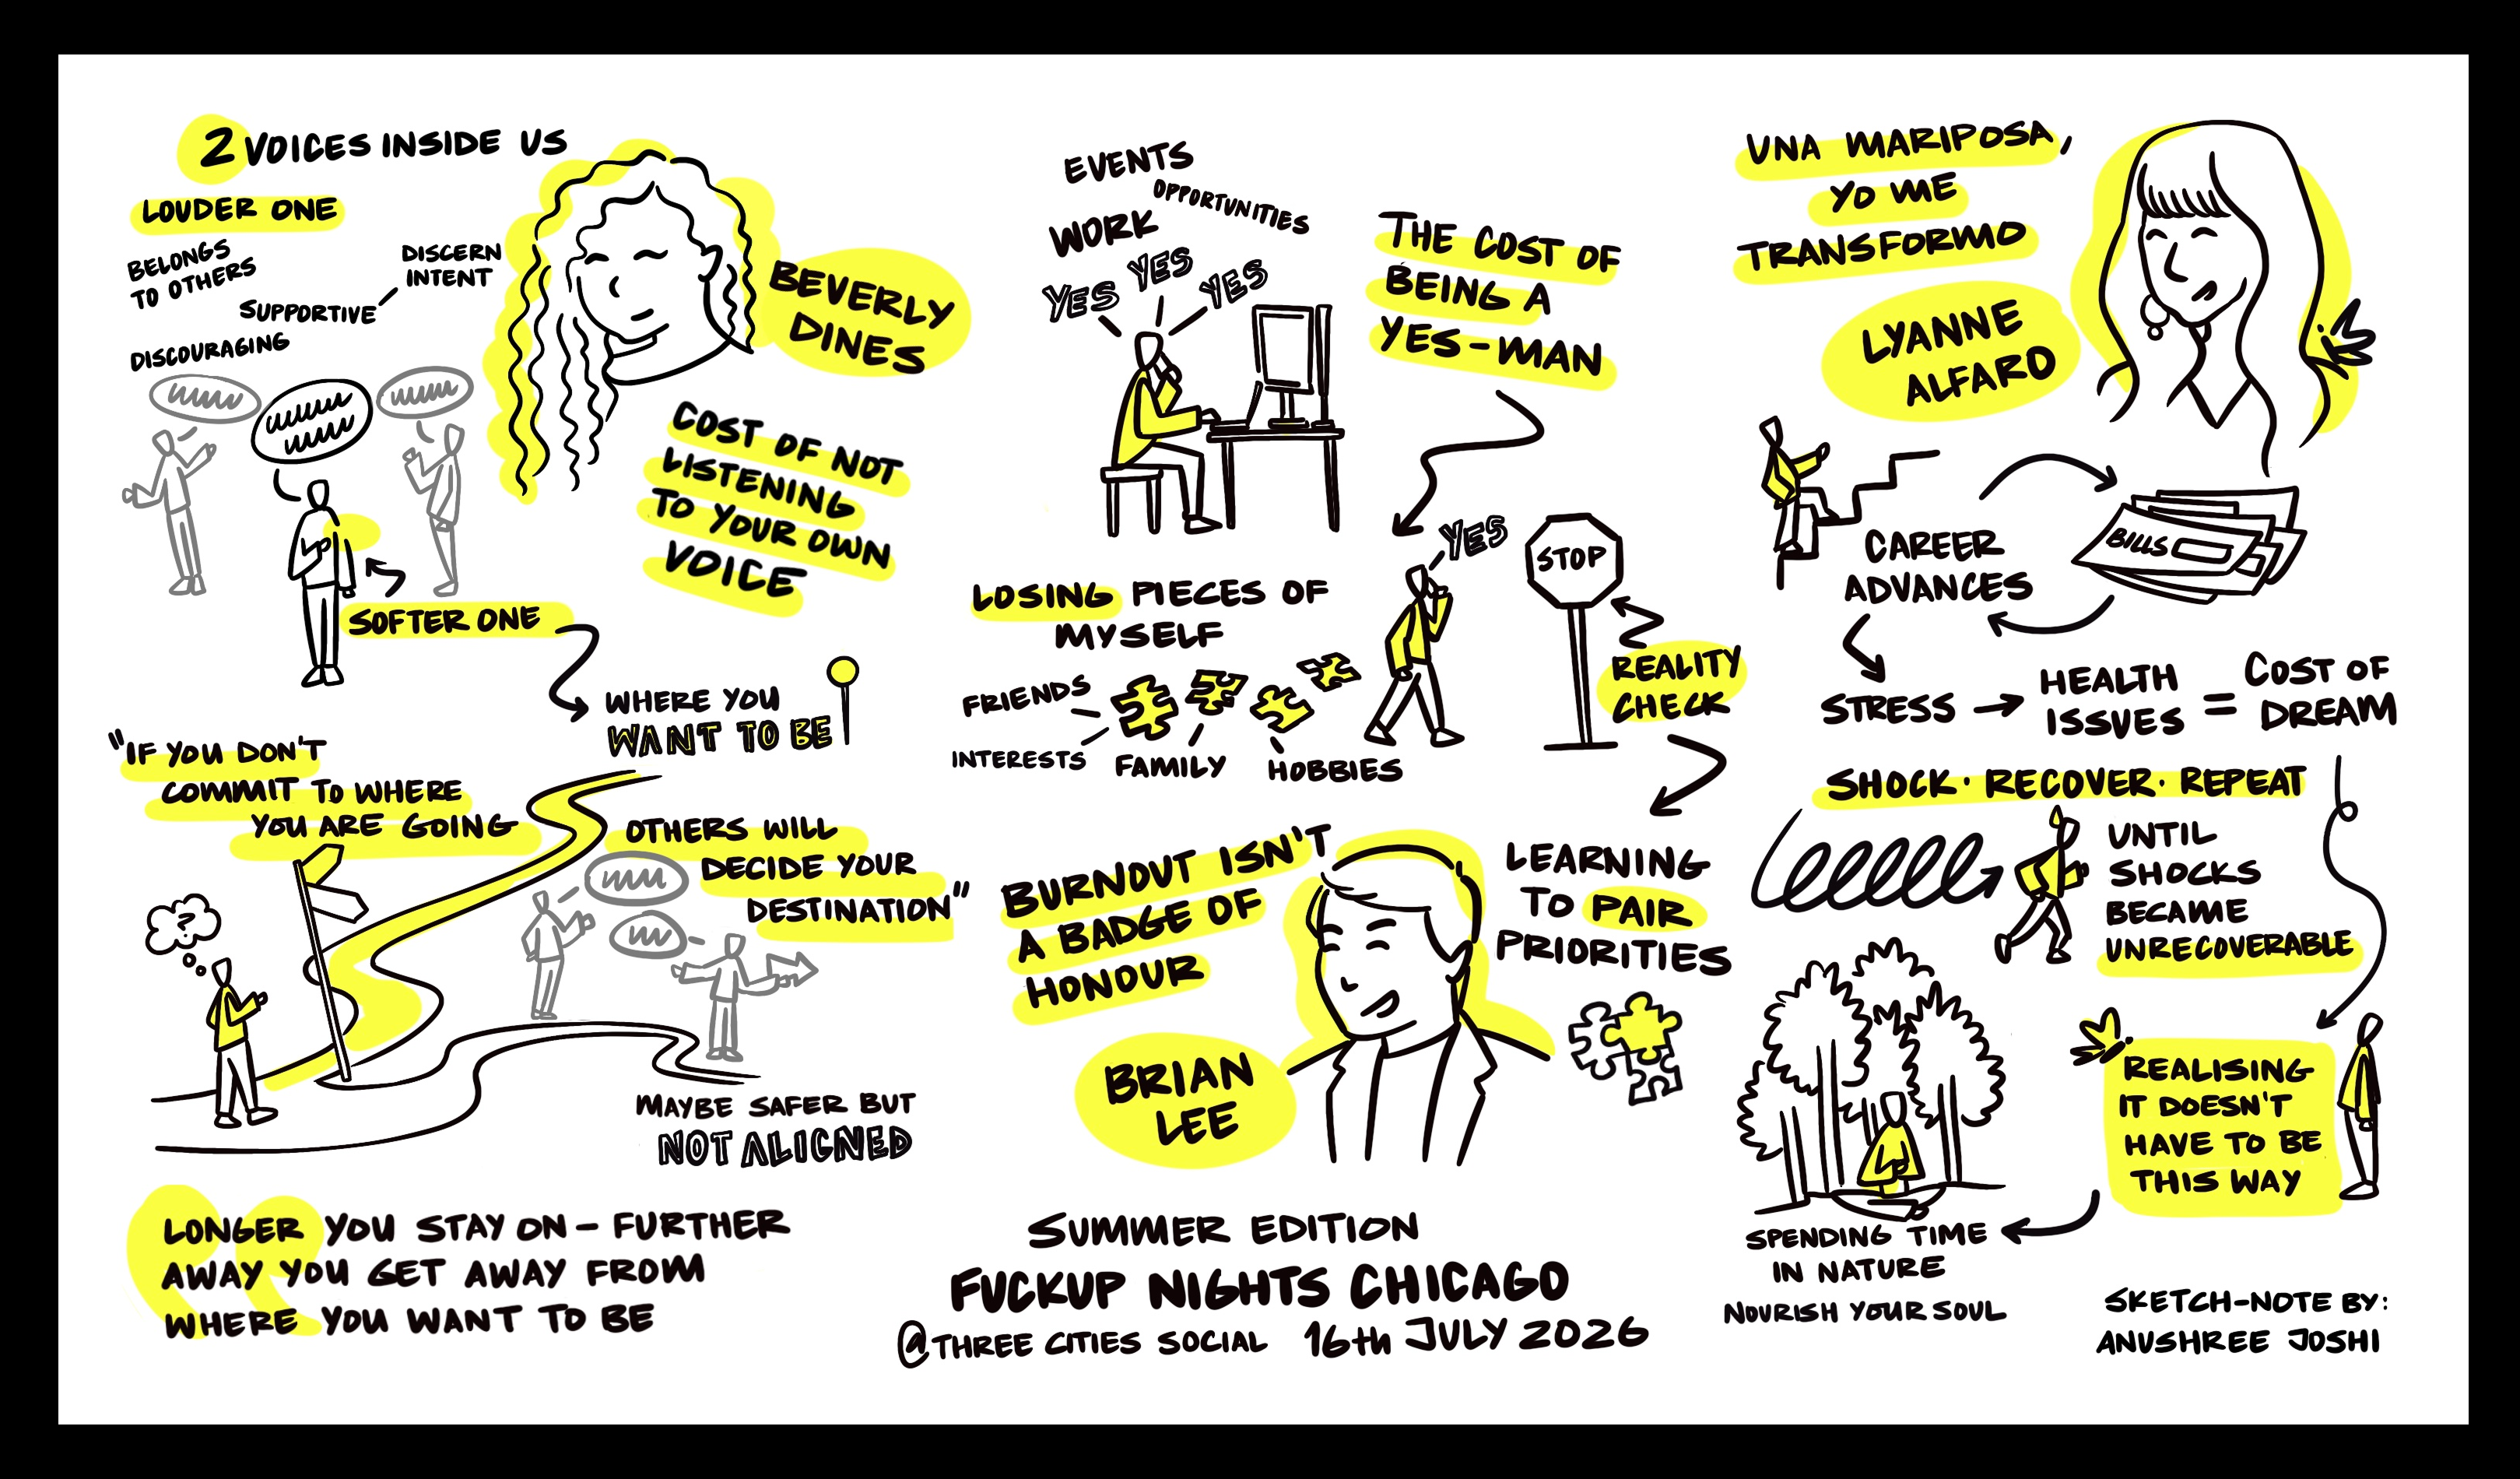 2 VOICES INSIDE US
LOUDER ONE
BELONGS
TO OTHERS
DISCERN
INTENT
SUPPORTIVE
DISCOURAGING
BEVERLY
DINES
COST OF NOT
LISTENING
TO YOUR OWN
VOICE
SOFTER ONE
WHERE YOU
WANT TO BE
"IF YOU DON'T
COMMIT TO WHERE
YOU ARE GOING
OTHERS WILL
DECIDE YOUR
DESTINATION"
?
MAYBE SAFER BUT
NOT ALIGNED
LONGER YOU STAY ON – FURTHER
AWAY YOU GET AWAY FROM
WHERE YOU WANT TO BE
EVENTS
OPPORTUNITIES
WORK
YES YES YES
THE COST OF
BEING A
YES-MAN
YES
STOP
LOSING PIECES OF
MYSELF
REALITY
CHECK
FRIENDS
INTERESTS
FAMILY
HOBBIES
BURNOUT ISN'T
A BADGE OF
HONOUR
LEARNING
TO PAIR
PRIORITIES
BRIAN
LEE
SUMMER EDITION
FUCKUP NIGHTS CHICAGO
@THREE CITIES SOCIAL 16th JULY 2026
UNA MARIPOSA,
YO ME
TRANSFORMO
LYANNE
ALFARO
CAREER
ADVANCES
BILLS
STRESS → HEALTH
ISSUES = COST OF
DREAM
SHOCK · RECOVER · REPEAT
UNTIL
SHOCKS
BECAME
UNRECOVERABLE
REALISING
IT DOESN'T
HAVE TO BE
THIS WAY
SPENDING TIME
IN NATURE
NOURISH YOUR SOUL
SKETCH-NOTE BY:
ANUSHREE JOSHI